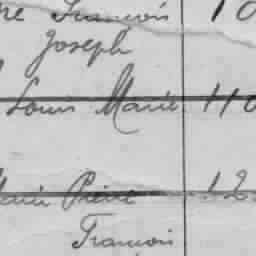 François 10
Joseph
Louis Marie 110
Marie Pierre 12
François